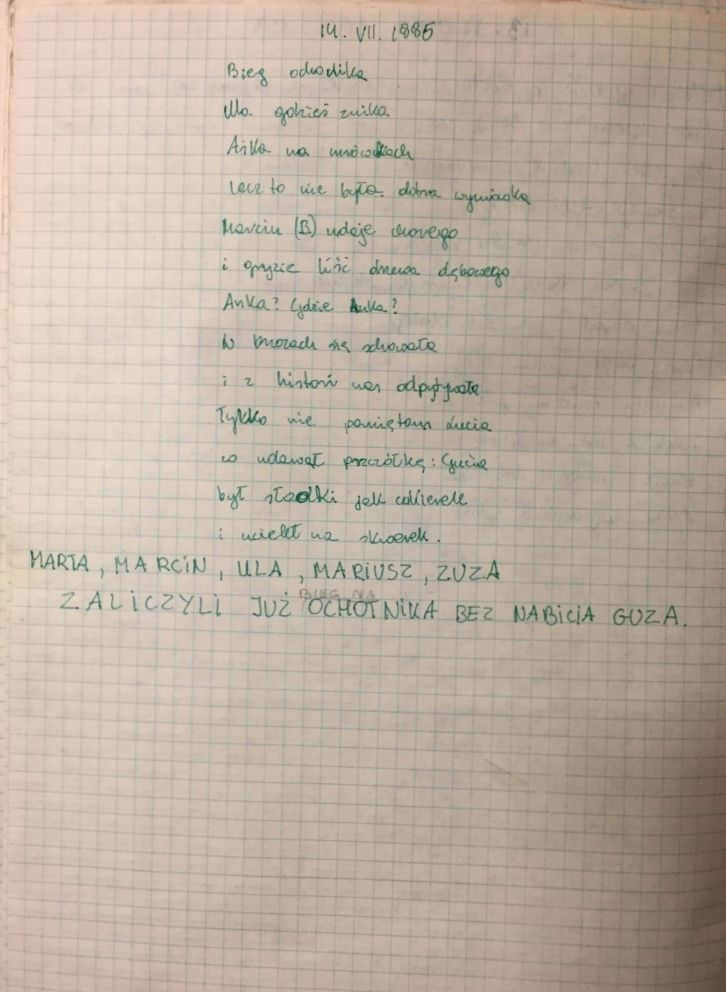 14. VII. 1985
Bieg ochotnika
Ula gdzieś znika
Anka na mrówkach
lecz to nie była dobra
Marcin (B) udaje chorego
i gryzie liść drzewa dębowego
Anka? Gdzie Anka?
W się schowała
i z histori nas odpytywała
Tylko nie pamiętam Lucia
co udawał pszczółkę: Gucia
był słodki jak cukierek
i uciekł na skwerek.
MARTA, MARCIN, ULA, MARIUSZ, ZUZA
BIEG NA
ZALICZYLI JUŻ OCHOTNIKA BEZ NABICIA GUZA.